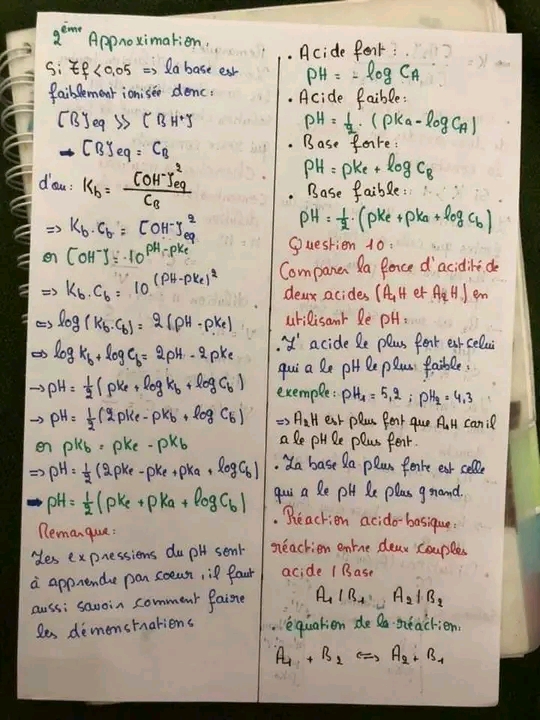 2ème Approximation.
Si τf < 0,05 => la base est
faiblement ionisée donc:
[B]eq >> [BH+]
→ [B]eq = CB
d'où: Kb = [OH-]²eq / CB
=> Kb . Cb = [OH-]²eq
or [OH-] = 10^(pH-pKe)
=> Kb . Cb = 10^(pH-pKe)²
<=> log(Kb.Cb) = 2(pH - pKe)
<=> log Kb + log Cb = 2pH - 2pKe
→ pH = 1/2 (pKe + log Kb + log Cb)
→ pH = 1/2 (2pKe - pKb + log Cb)
or pKb = pKe - pKb
=> pH = 1/2 (2pKe - pKe + pKa + log Cb)
→ pH = 1/2 (pKe + pKa + log Cb)
Remarque:
Les expressions du pH sont
à apprendre par coeur, il faut
aussi savoir comment faire
les démonstrations
• Acide fort :
pH = - log CA
• Acide faible:
pH = 1/2 . (pKa - log CA)
• Base forte:
pH = pKe + log CB
• Base faible:
pH = 1/2 . (pKe + pKa + log Cb)
Question 10:
Comparer la force d'acidité de
deux acides (A1H et A2H) en
utilisant le pH:
• L'acide le plus fort est celui
qui a le pH le plus faible:
exemple: pH1 = 5,2 ; pH2 = 4,3
=> A2H est plus fort que A1H car il
a le pH le plus fort.
• La base la plus forte est celle
qui a le pH le plus grand.
• Réaction acido-basique:
réaction entre deux couples
acide / Base
A1 / B1 A2 / B2
• équation de la réaction:
A1 + B2 <=> A2 + B1